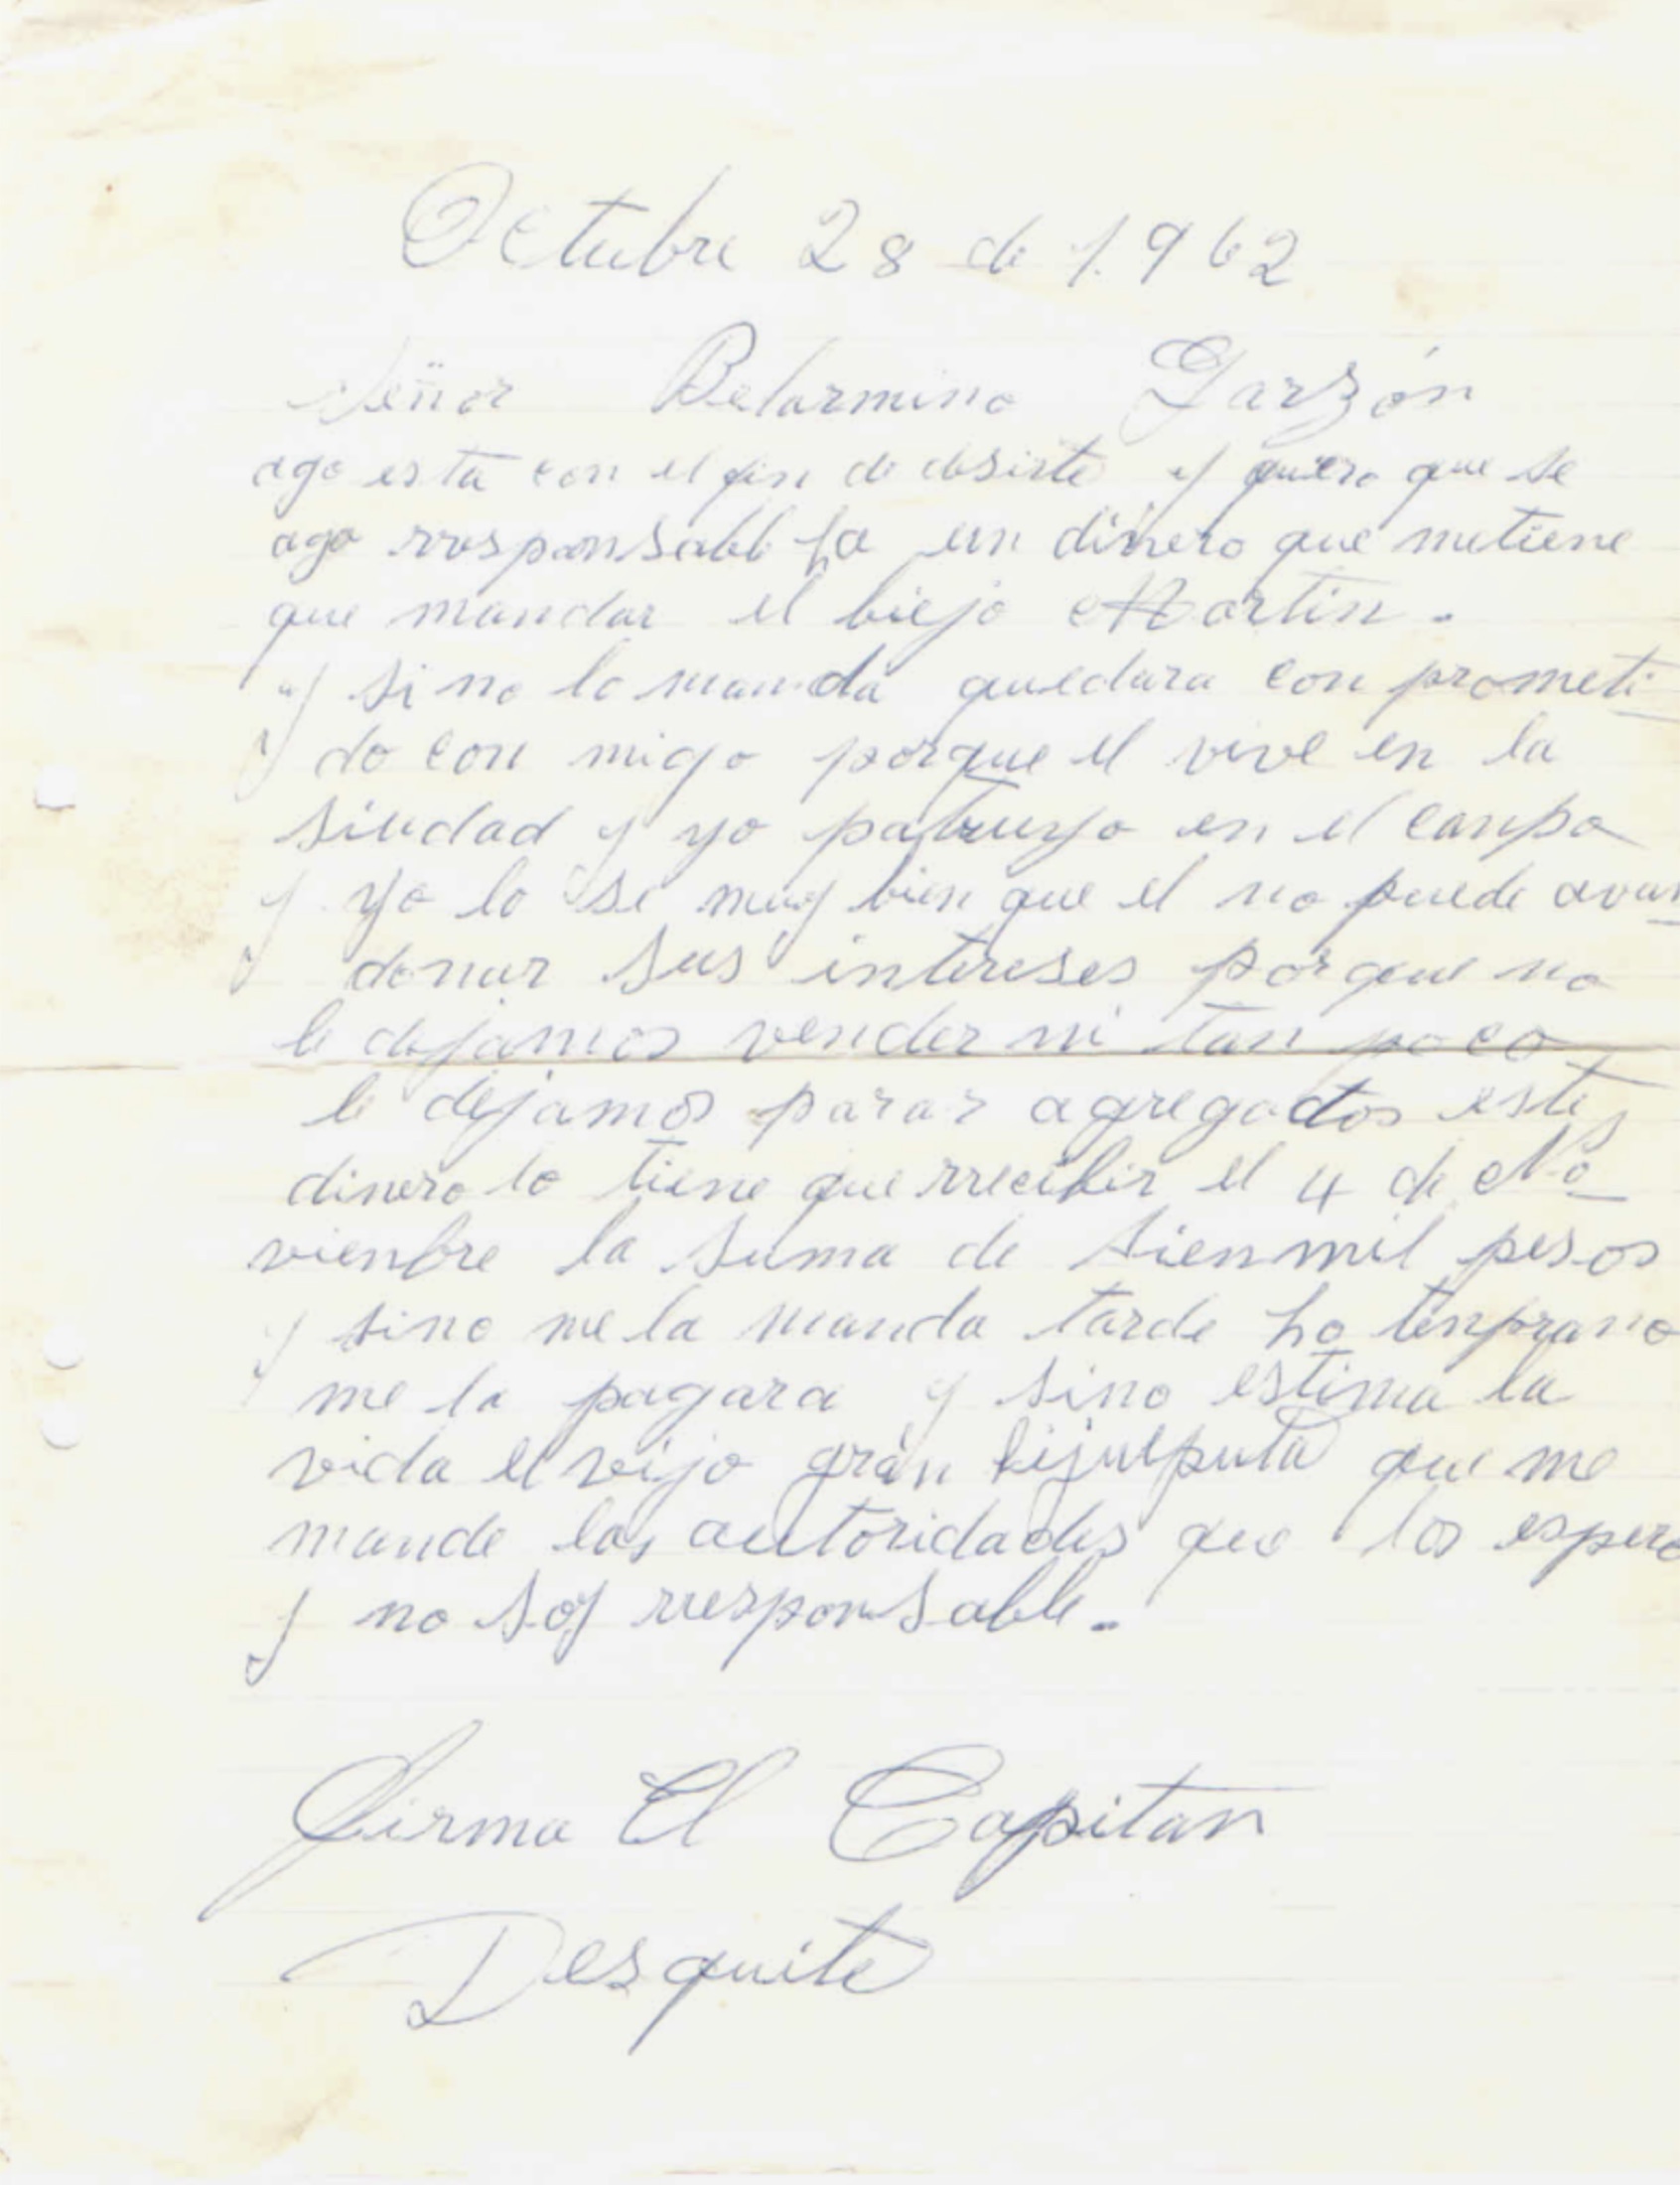 Octubre 28 de 1.962
Señor Belarmino Garzón
ago esta con el fin de desirte y quiero que se
aga rresponsable ha un dinero que metiene
que mandar el biejo Martin.
y si no lo manda quedara con prometi
do con migo porque el vive en la
siudad y yo patruyo en el canpo
y yo lo se muy bien que el no puede avan
donar sus intereses porque no
le dejamos vender ni tan poco
le dejamos parar agregados este
dinero lo tiene que rrecibir el 4 de No
vienbre la suma de sienmil pesos
y sino me la manda tarde ho tenprano
me la pagara y sino estima la
vida el veijo gran hijuelputa que me
mande las autoridades que los espero
y no soy rresponsable.
Firma El Capitan
Desquite